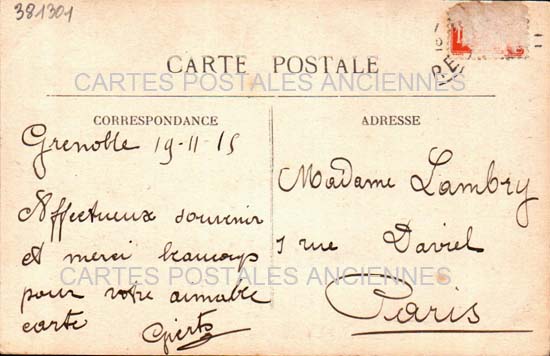 381301
CARTE POSTALE
CARTES POSTALES ANCIENNES
CORRESPONDANCE
ADRESSE
Grenoble 19-11-15
Affectueux souvenir
et merci beaucoup
pour votre aimable
carte
Madame Lambry
rue Daviel
Paris
CARTES POSTALES ANCIENNES